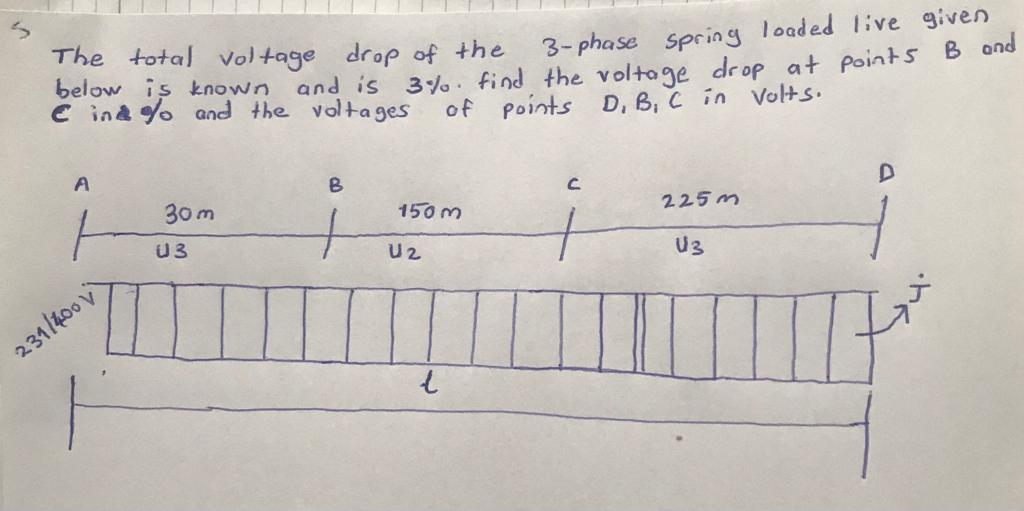 S
The total voltage drop of the 3-phase spring loaded live given
below is known and is 3%. find the voltage drop at points B and
C in % and the voltages of points D, B, C in Volts.
A B C D
30m 150m 225m
U3 U2 U3
231/400 V
j
l